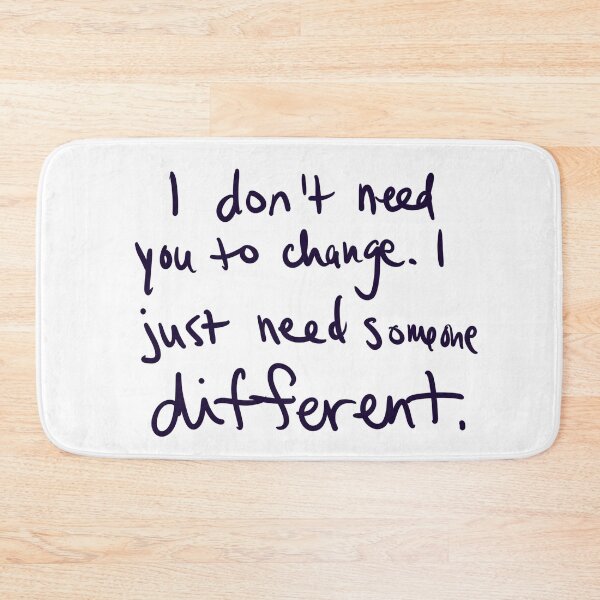 I don't need
you to change. I
just need someone
different.